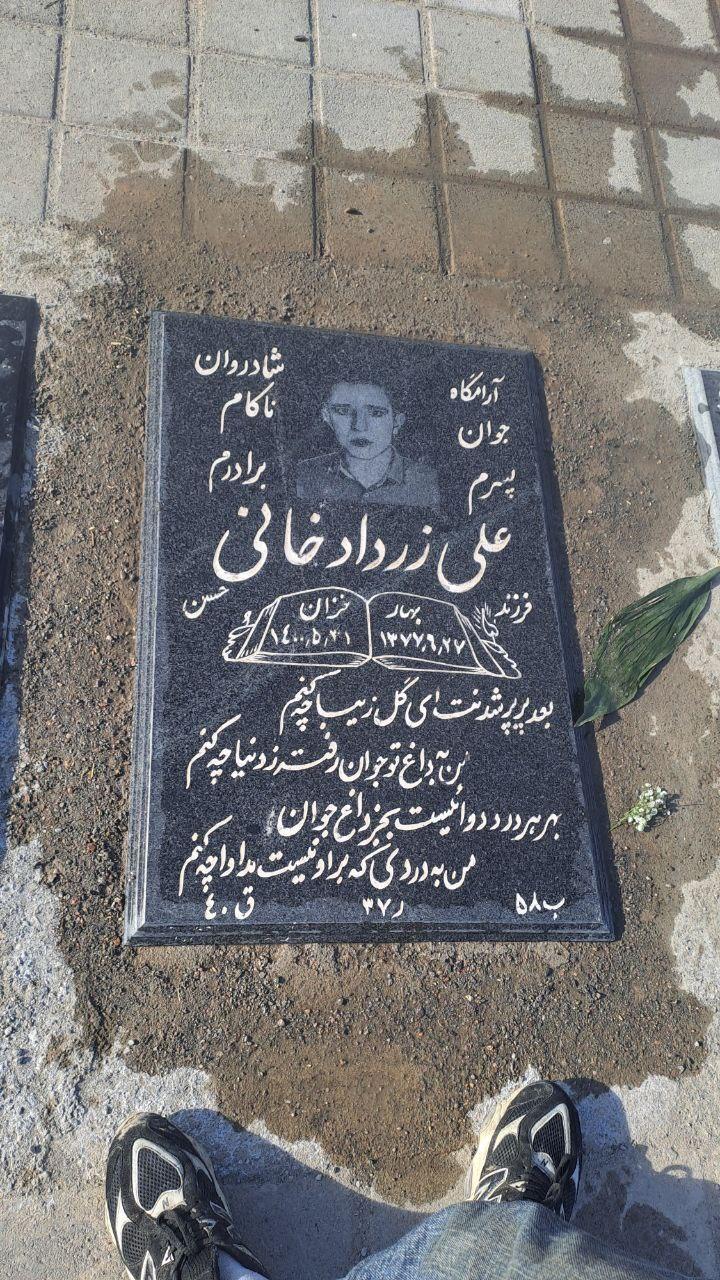 آرامگاه شادروان
جوان ناکام
پسرم برادرم
علی زرداد خانی
فرزند حسن
بهار خزان
۱۳۷۷,۹,۲۷ ۱۴۰۰,۵,۲۱
بعد پرپر شدنت ای گل زیبا چه کنم
من به داغ تو جوان رفته ز دنیا چه کنم
بهر هر درد دوائیست بجز داغ جوان
من به دردی که بر او نیست مداوا چه کنم
ب۵۸ ر۳۷ ق۴۰